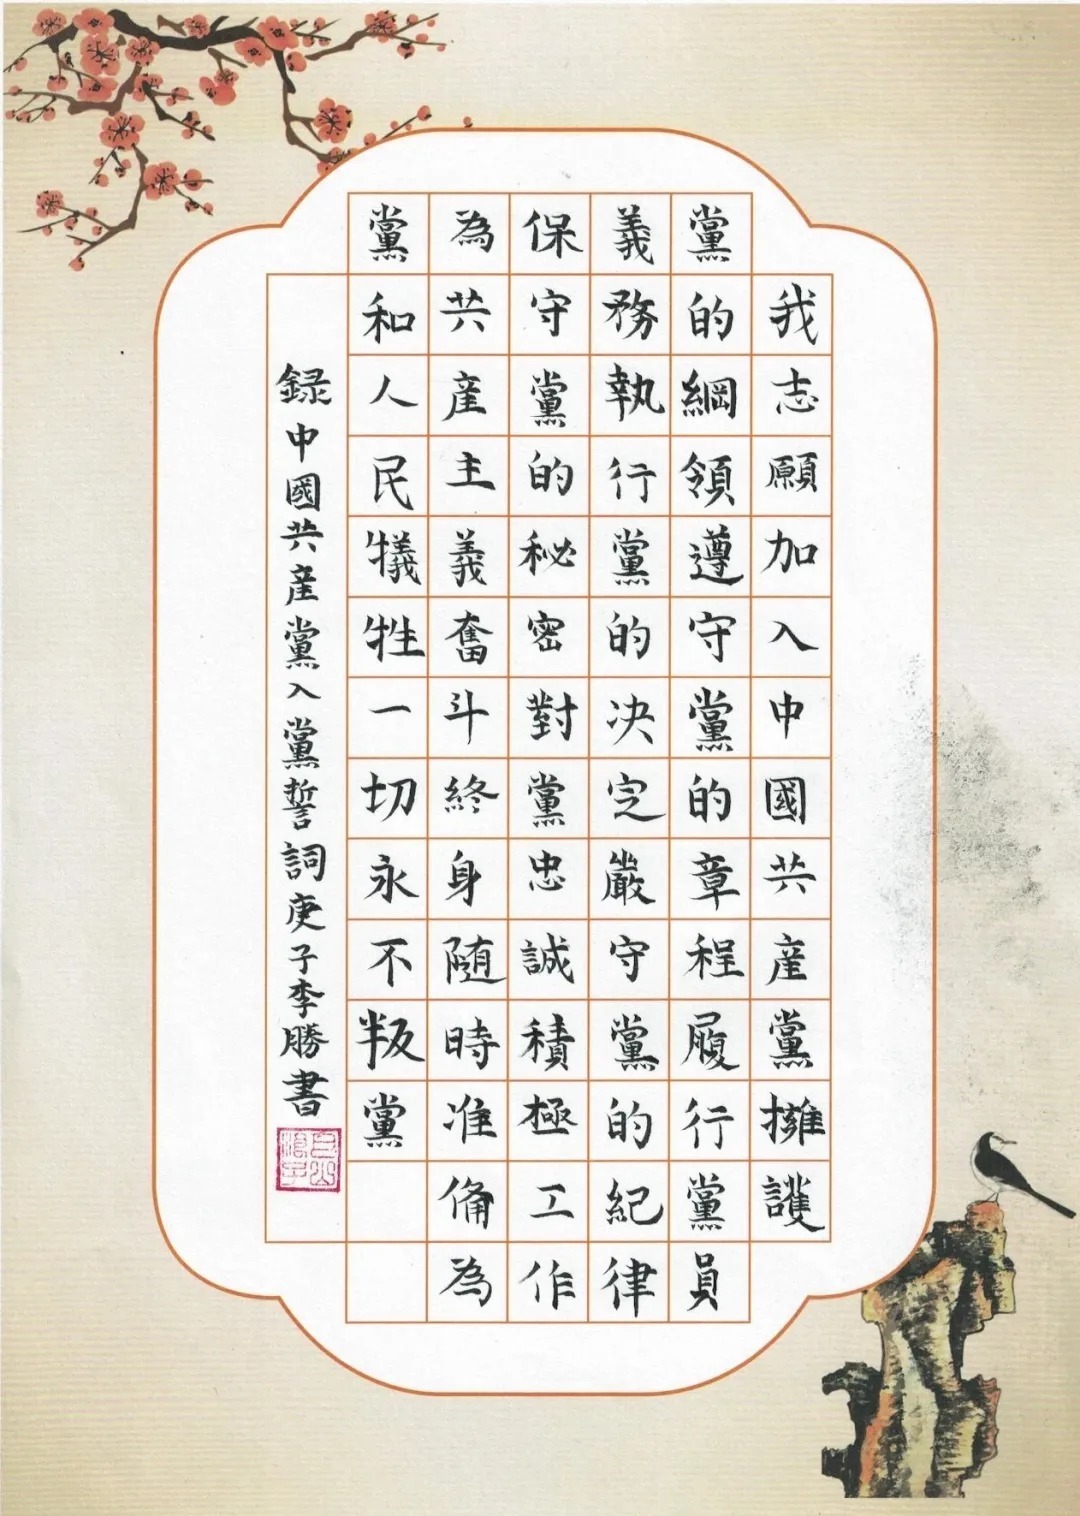 我志願加入中國共産黨擁護
黨的綱領遵守黨的章程履行黨員
義務執行黨的决定嚴守黨的紀律
保守黨的秘密對黨忠誠積極工作
為共産主義奮斗終身随時准備為
黨和人民犠牲一切永不叛黨
録中國共産黨入黨誓詞庚子李勝書